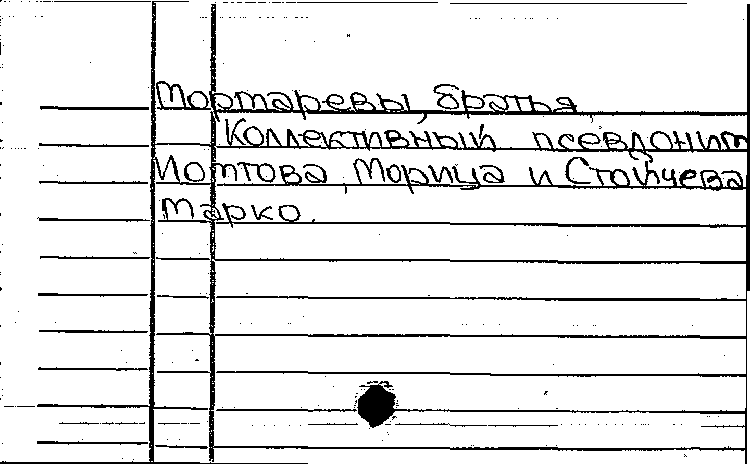 Мортаревы, братья,
Коллективный псевдоним
Йомтова, Морица и Стойчева
Марко.